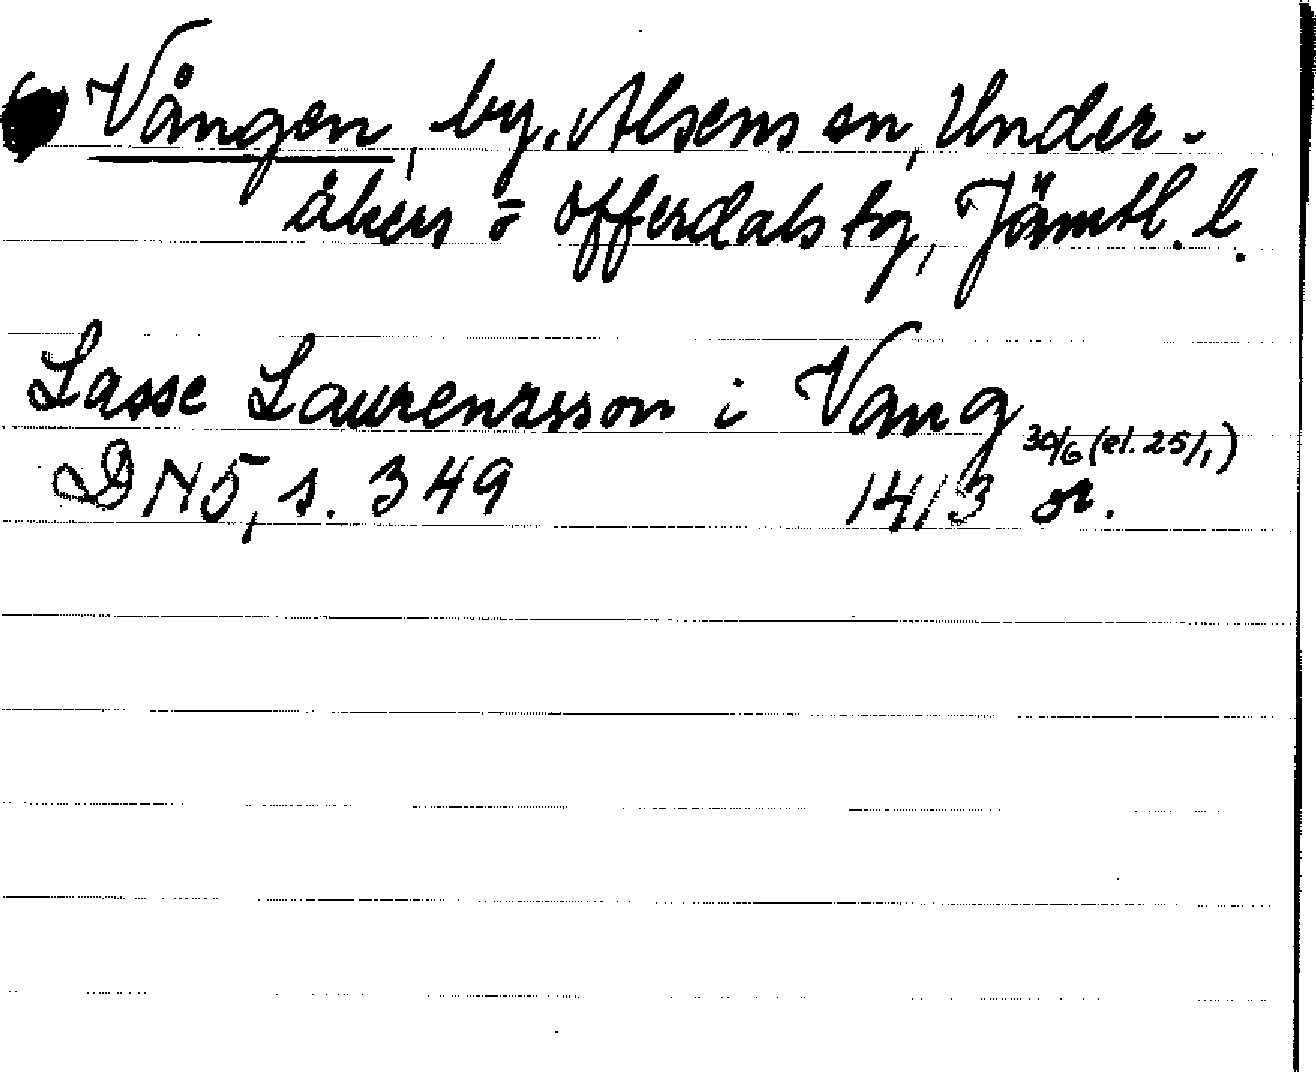 Vången, by, Alsens sn, Under-
åkers o Offerdals tg, Jämtl. l.
Lasse Laurenzsson i Vang
30/6 (el. 25/1)
DN 5, s. 349 1413 or.